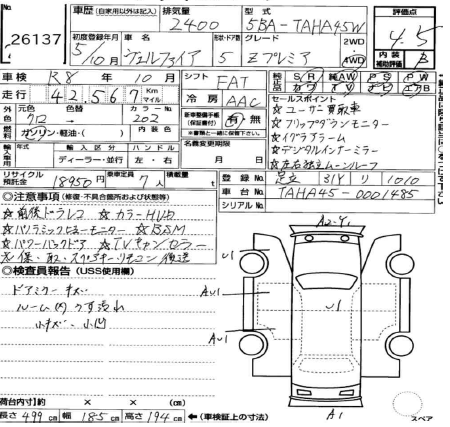 No. 26137
車歴 (自家用以外は記入) 排気量 2400
型式 5BA-TAHA45W
評価点 4.5
初度登録年月 5/10月
車名 ヴェルファイア
形状・ドア数 5
グレード Zプレミア 2WD 4WD
内装補助評価 B
車検 R8年 10月
シフト FAT
走行 42,567 Km マイル
冷房 AAC
SR 純AW PS PW
カワ TV ナビ エアB
外色 元色 クロ 色替 カラーNo. 202
燃料 ガソリン・軽油・( ) 内装色
新車整備手帳 (保証書付) 有 無
※書類と一緒に保管下さい。
セールスポイント
☆ユーザー買取車
☆フリップダウンモニター
☆デジタルインナーミラー
☆左右独立ムーンルーフ
輸入車 年式 輸入区分 ディーラー・並行 ハンドル 左・右
名義変更期限 月 日
リサイクル預託金 18950円
乗車定員 7人
積載量 t
登録No. 足立 314 リ 1010
車台No. TAHA45-0001485
シリアルNo.
◎注意事項 (修復・不具合箇所および状態等)
☆前後ドラレコ ☆カラーHUD
☆パノラミックビューモニター ☆BSM
☆パワーバックドア ☆TVキャンセラー
☆保、取、スペアキー、リモコン 後送
◎検査員報告 (USS使用欄)
ドアミラーキズ
ルーム内うす汚れ
小キズ・小凹
A2-Y1
U1
AU1
U1
AU1
A1
スペア
荷台内寸]約 × × (cm)
長さ 499 cm 幅 185 cm 高さ 194 cm ←(車検証上の寸法)